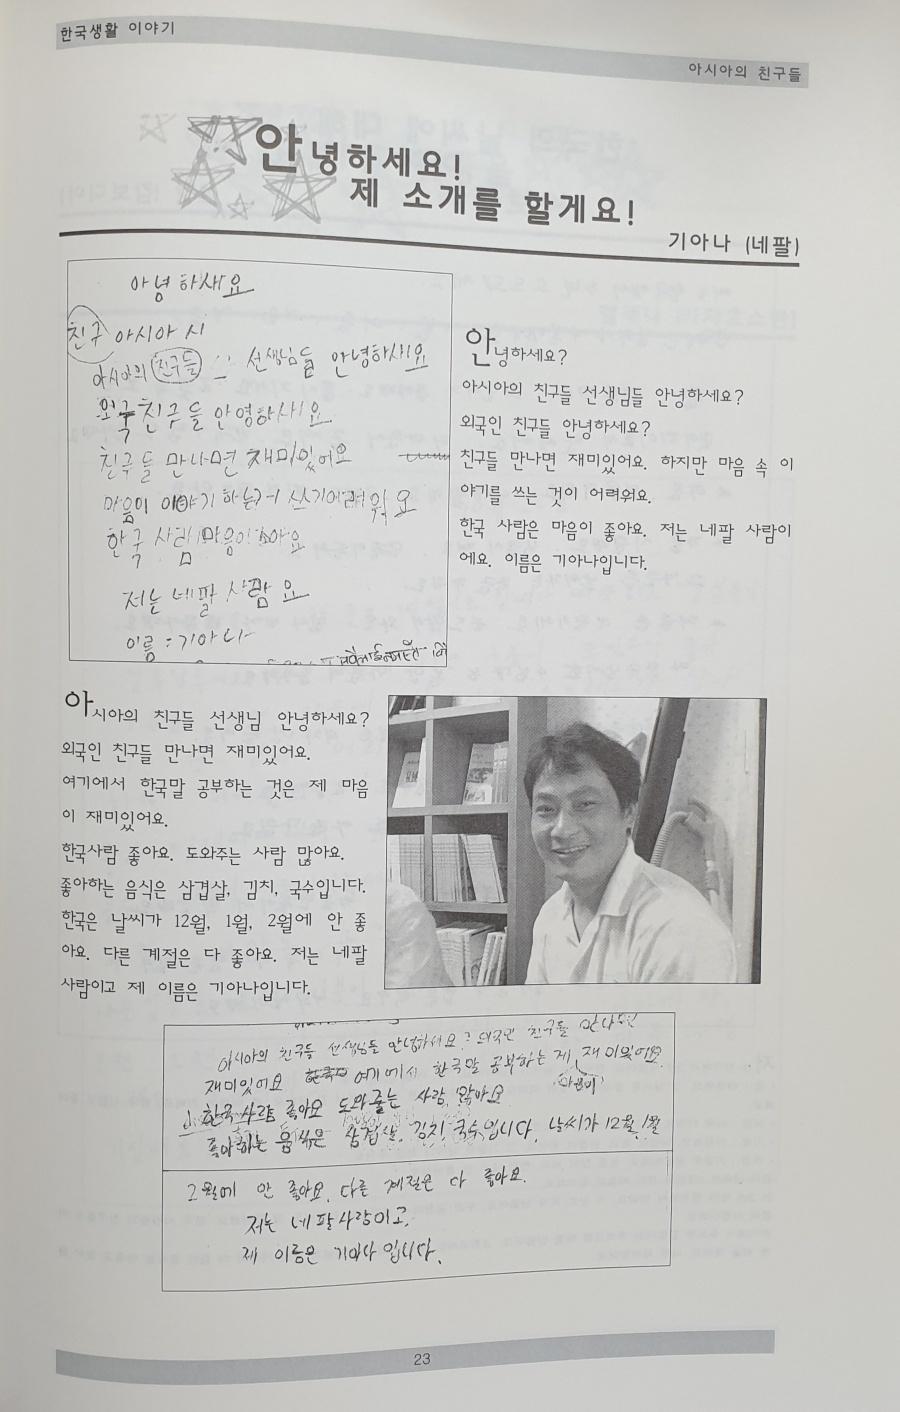 한국생활 이야기
아시아의 친구들
안녕하세요!
제 소개를 할게요!
기아나 (네팔)
안녕하새요
친구 아시아 시
아시아의 친구들 선생님들 안녕하세요
외국친구들 안영하세요
친구들 만나면 재미있어요
마음이 이야기 하는거 쓰기어려워요
한국 사람 마음이 좋아요
저는 네팔 사람 요
이름 : 기아나
안녕하세요?
아시아의 친구들 선생님들 안녕하세요?
외국인 친구들 안녕하세요?
친구들 만나면 재미있어요. 하지만 마음 속 이
야기를 쓰는 것이 어려워요.
한국 사람은 마음이 좋아요. 저는 네팔 사람이
에요. 이름은 기아나입니다.
아시아의 친구들 선생님 안녕하세요?
외국인 친구들 만나면 재미있어요.
여기에서 한국말 공부하는 것은 제 마음
이 재미있어요.
한국사람 좋아요. 도와주는 사람 많아요.
좋아하는 음식은 삼겹살, 김치, 국수입니다.
한국은 날씨가 12월, 1월, 2월에 안 좋
아요. 다른 계절은 다 좋아요. 저는 네팔
사람이고 제 이름은 기아나입니다.
아시아의 친구들 선생님들 안녕하세요? 외국인 친구들 만나면
재미있어요 여기에서 한국말 공부하는 게 재미있어요.
마음이
한국사람 좋아요 도와줄는 사람 많아요
좋아하는 음식은 삼겹살. 김치. 국수입니다. 날씨가 12월, 1월
2월에 안 좋아요. 다른 계절은 다 좋아요.
저는 네팔사람이고.
제 이름은 기아나입니다.
23